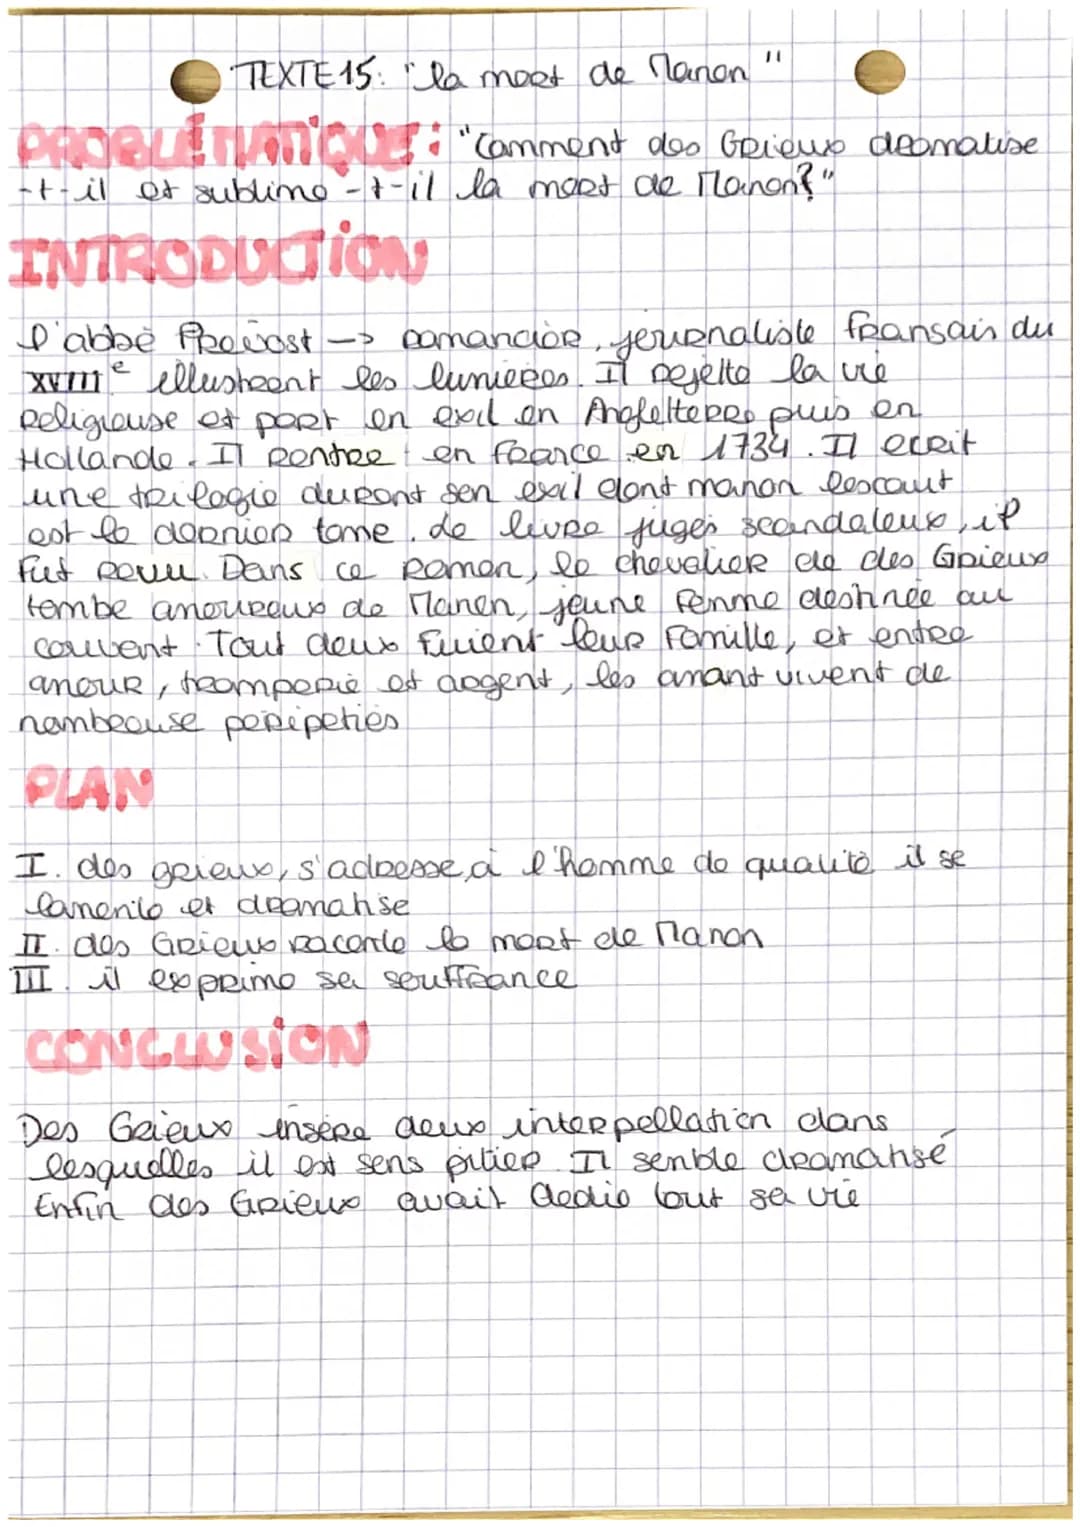 TEXTE 15: "la mort de Manon"
PROBLÉMATIQUE: "Comment des Grieux dramatise
-t-il et sublime-t-il la mort de Manon?"
INTRODUCTION
l'abbé Prévost -> romancier, jeurnaliste fransais du
XVIIIe illustrant les lumières. Il rejette la vie
religieuse et part en exil en Anglelterre puis en
Hollande. Il rentre en france en 1734. Il ecrit
une trilogie durant son exil dont manon lescaut
est le dernier tome. de livre jugés scandaleux, il
fut revu. Dans ce roman, le chevalier de des Grieux
tombe amoureux de Manon, jeune femme destinée au
couvent. Tout deux fuient leur famille, et entre
amour, tromperie et argent, les amant vivent de
nombreuse péripéties
PLAN
I. des grieux, s'adresse à l'homme de qualité il se
lamente et dramatise
II. des Grieux raconte la mort de Manon
III. il exprime sa souffrance
CONCLUSION
Des Grieux insère deux interpellation dans
lesquelles il est sens pitier. Il semble dramatisé
Enfin des Grieux avait dedie tout sa vie